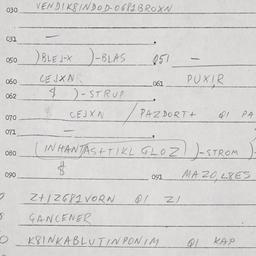 030 VENDIK8INDOD-0681BROXN
031 —
050 )BLEJ-X )-BLAS 051 —
060 CEJXN 061 PUXIR
062 8 )-STRUP
070 CEJXN / PAZDORT+ QI PA
071 —
080 (INHANTAS+TIKL GLOZ) )-STROM )-
090 8 091 MAZO,L8ES
Z+IZ681VORN QI ZI
GANCENER
K8INKABLUTINPONIM QI KAP